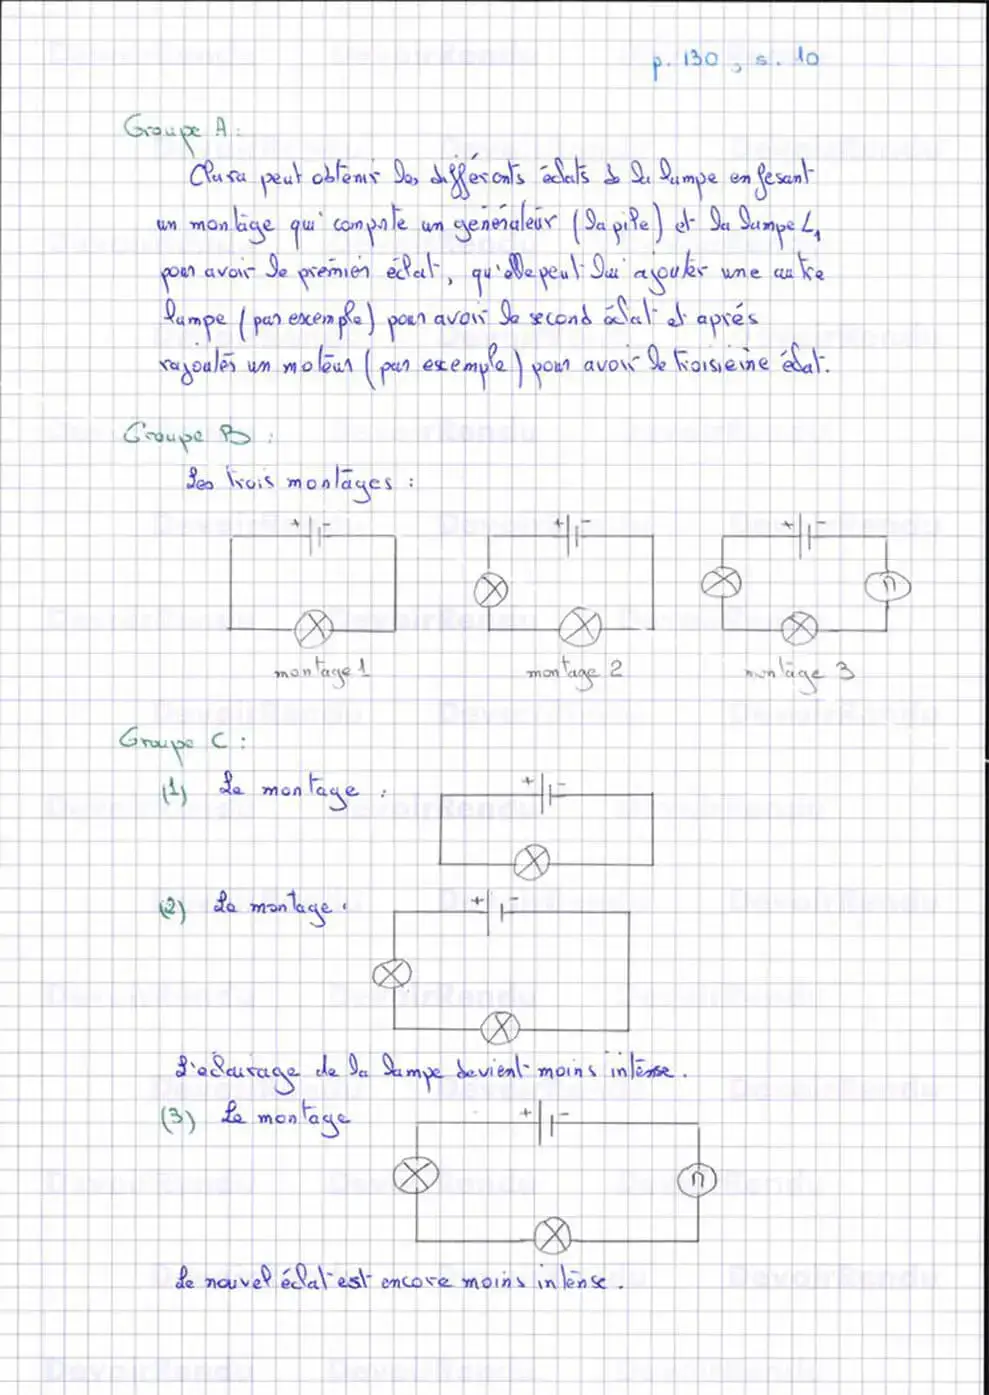 p. 130, s. 10
Groupe A :
Clara peut obtenir les différents éclats de la lampe en fesant
un montage qui comporte un générateur (la pile) et la lampe L1
pour avoir le premier éclat, qu'elle peut lui ajouter une autre
lampe (par exemple) pour avoir le second éclat et aprés
rajoutés un moteur (par exemple) pour avoir le troisième éclat.
Groupe B :
Les trois montages :
+ -
+ -
+ -
n
montage 1
montage 2
montage 3
Groupe C :
(1) Le montage :
+ -
(2) Le montage :
+ -
L'éclairage de la lampe devient moins intense.
(3) Le montage
+ -
n
Le nouvel éclat est encore moins intense.